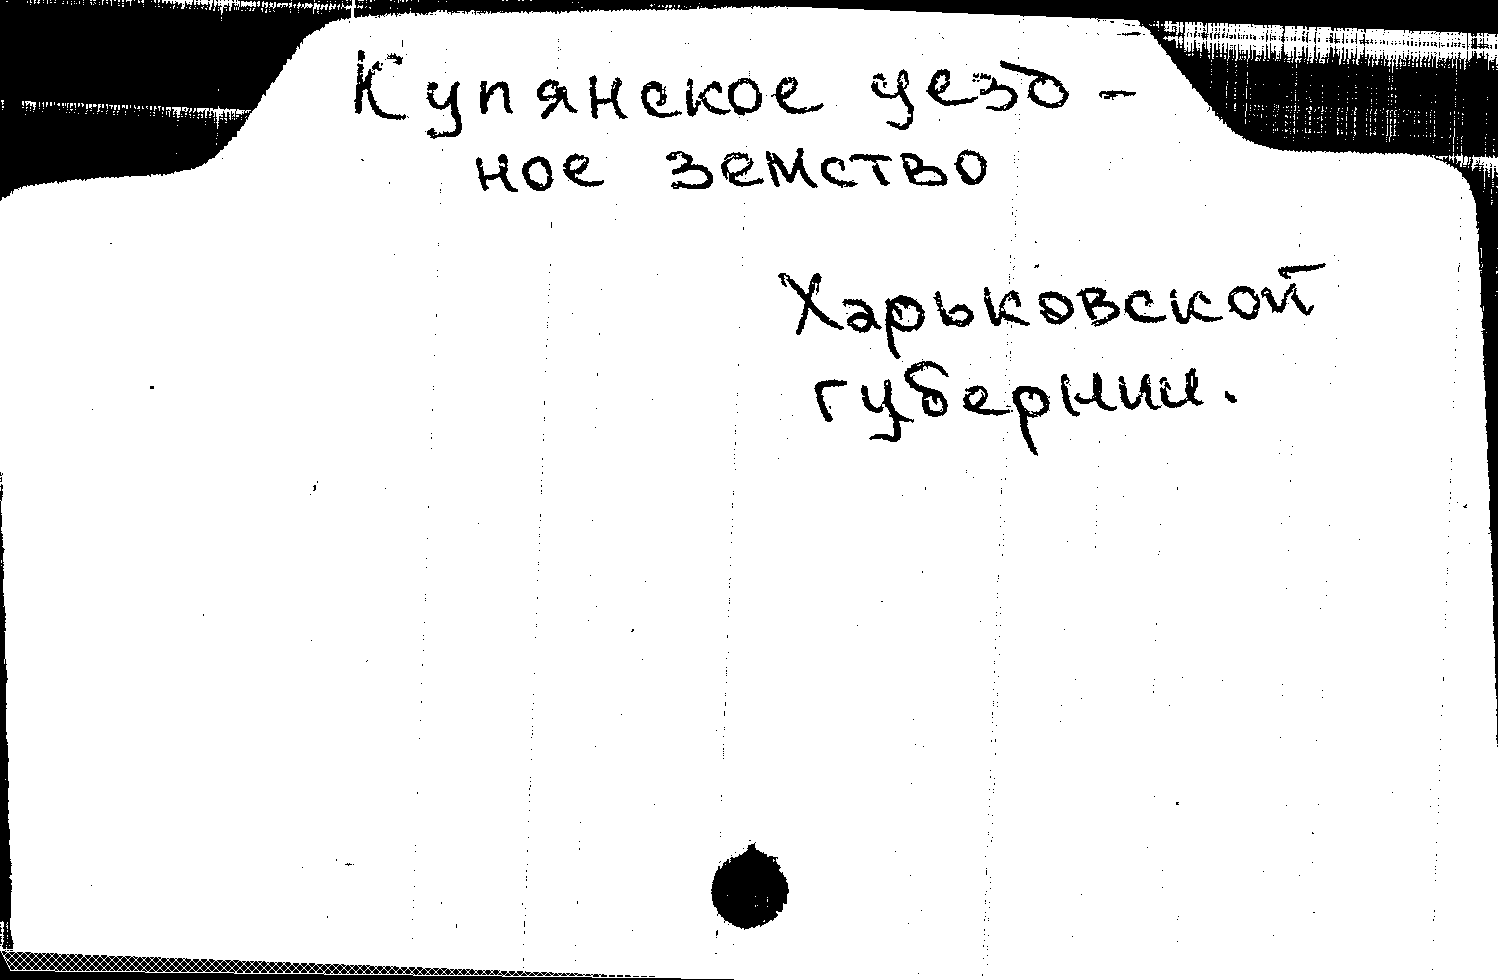 Купянское уезд-
ное земство
Харьковской
губернии.